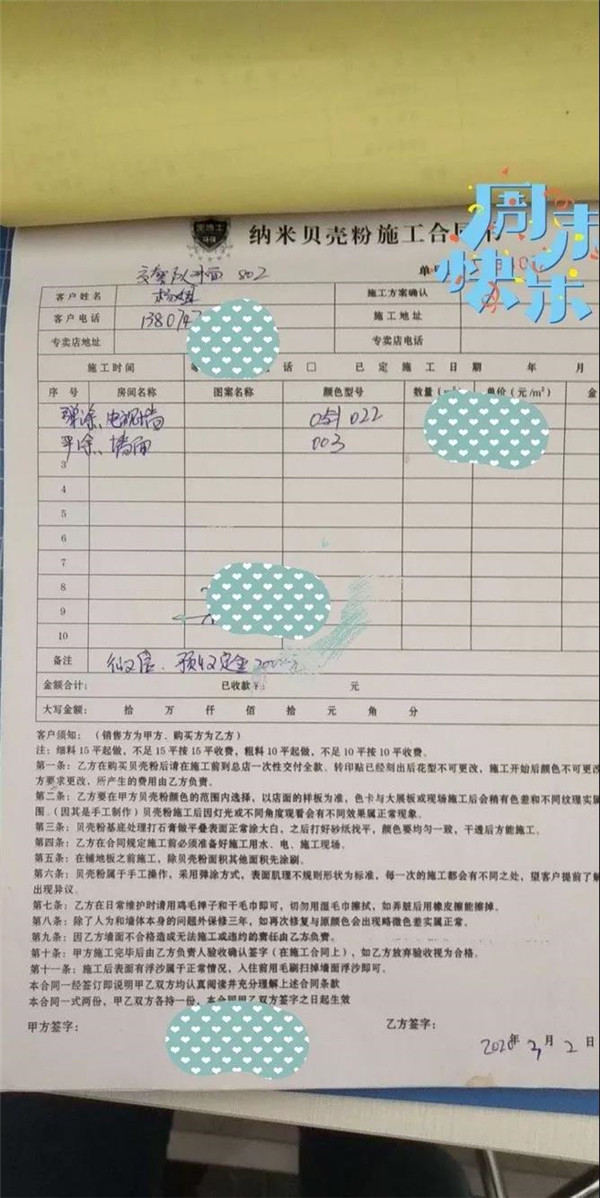 纳米贝壳粉施工合同书
周末快乐
802
客户姓名 施工方案确认
客户电话 1380747 施工地址
专卖店地址 专卖店电话
施工时间 话□ 已定施工日期 年 月
序 号 房间名称 图案名称 颜色型号 数量 单价(元/m²) 金
弹涂、电视墙 051 022
平涂、墙面 003
3
4
5
6
7
8
9
10
备注 预收定金
金额合计: 已收款 元
大写金额: 拾 万 仟 佰 拾 元 角 分
客户须知:(销售方为甲方、购买方为乙方)
注:细料15平起做,不足15平按15平收费,粗料10平起做,不足10平按10平收费。
第一条:乙方在购买贝壳粉后请在施工前到总店一次性交付全款、转印贴已经刻出后花型不可更改,施工开始后颜色不可更改
方要求更改,所产生的费用由乙方负责。
第二条:乙方要在甲方贝壳粉颜色的范围内选择,以店面的样板为准,色卡与大展板或现场施工后会稍有色差和不同纹理实属
围。(因其是手工制作)贝壳粉施工后因灯光或不同角度观看会有不同效果属正常现象。
第三条:贝壳粉基底处理打石膏做平叠表面正常涂大白,之后打好砂纸找平,颜色要均匀一致,干透后方能施工。
第四条:乙方在合同规定施工前必须准备好施工用水、电、施工现场。
第五条:在铺地板之前施工,除贝壳粉面积其他面积先涂刷。
第六条:贝壳粉属于手工操作,采用弹涂方式,表面肌理不规则形状为标准,每一次的施工都会有不同之处,望客户提前了解
出现异议。
第七条:乙方在日常维护时请用鸡毛掸子和干毛巾即可,切勿用湿毛巾擦拭,如弄脏后用橡皮擦能擦掉。
第八条:除了人为和墙体本身的问题外保修三年,如再次修复与原颜色会出现略微色差实属正常。
第九条:因乙方墙面不合格造成无法施工或违约的责任由乙方负责。
第十条:甲方施工完毕后由乙方负责人验收确认签字(在施工合同上),如乙方放弃验收视为合格。
第十一条:施工后表面有浮沙属于正常情况,入住前用毛刷扫掉墙面浮沙即可。
本合同一经签订即说明甲乙双方均认真阅读并充分理解上述合同条款
本合同一式两份,甲乙双方各持一份,本合同甲乙双方签字之日起生效
甲方签字: 乙方签字:
年 3月 2日